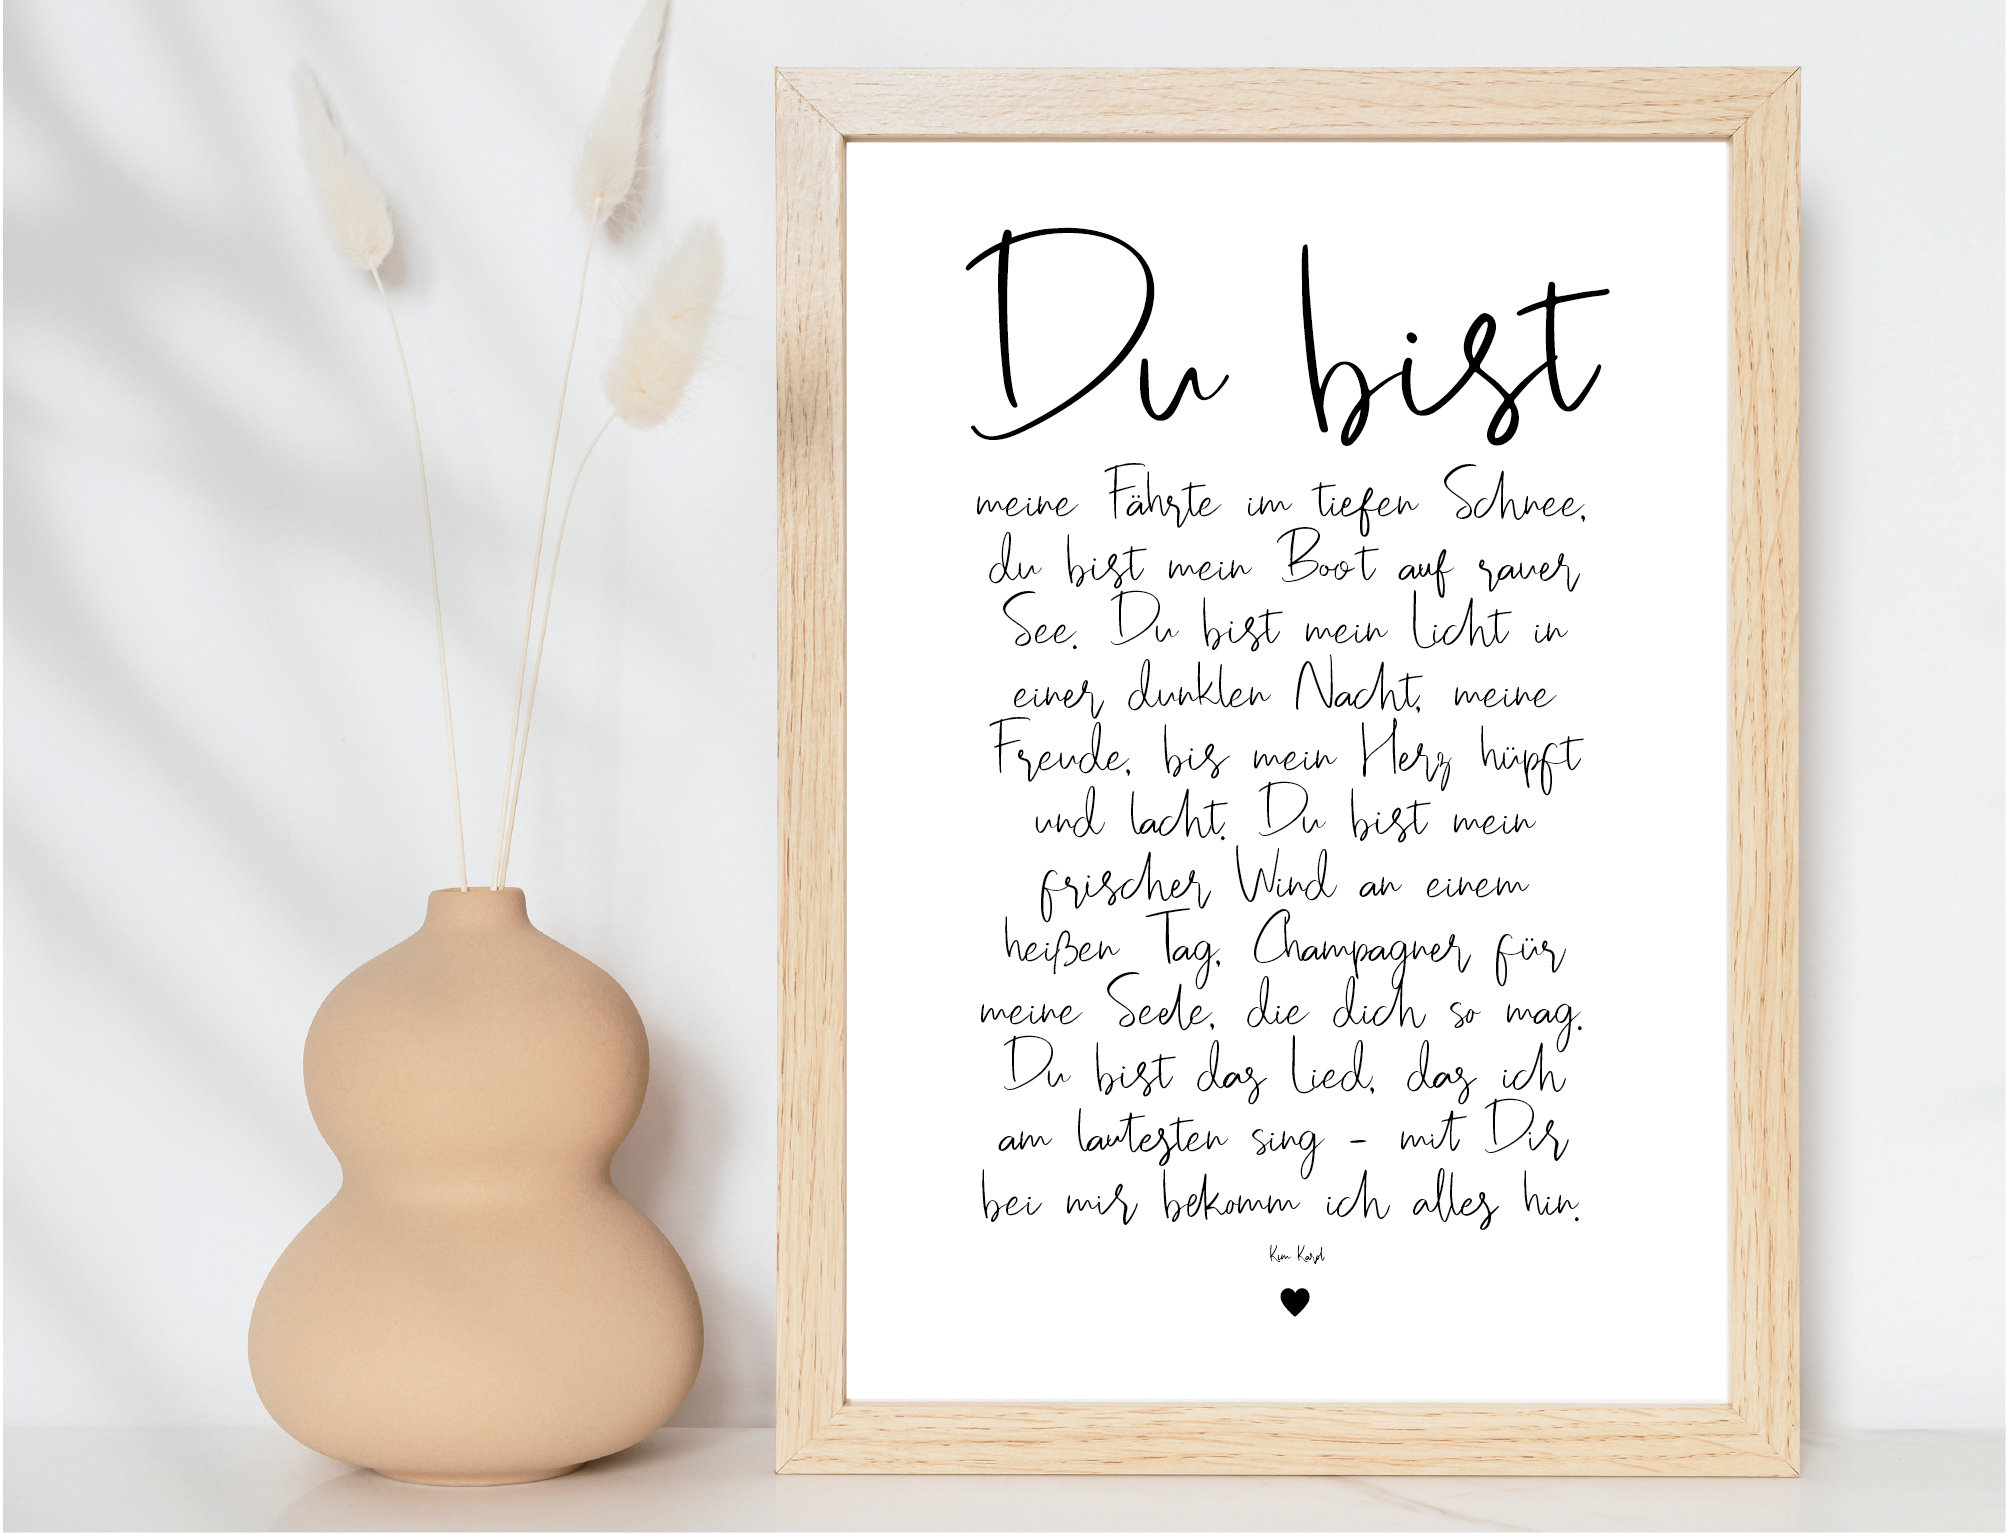 Du bist
meine Fährte im tiefen Schnee,
du bist mein Boot auf rauer
See. Du bist mein Licht in
einer dunklen Nacht, meine
Freude, bis mein Herz hüpft
und lacht. Du bist mein
frischer Wind an einem
heißen Tag, Champagner für
meine Seele, die dich so mag.
Du bist das Lied, das ich
am lautesten sing - mit Dir
bei mir bekomm ich alles hin.
Kim Karpl